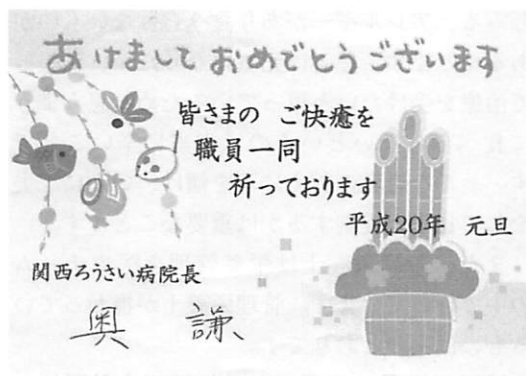 あけまして おめでとうございます
皆さまの ご快癒を
職員一同
祈っております
平成20年 元旦
関西ろうさい病院長
奥 謙